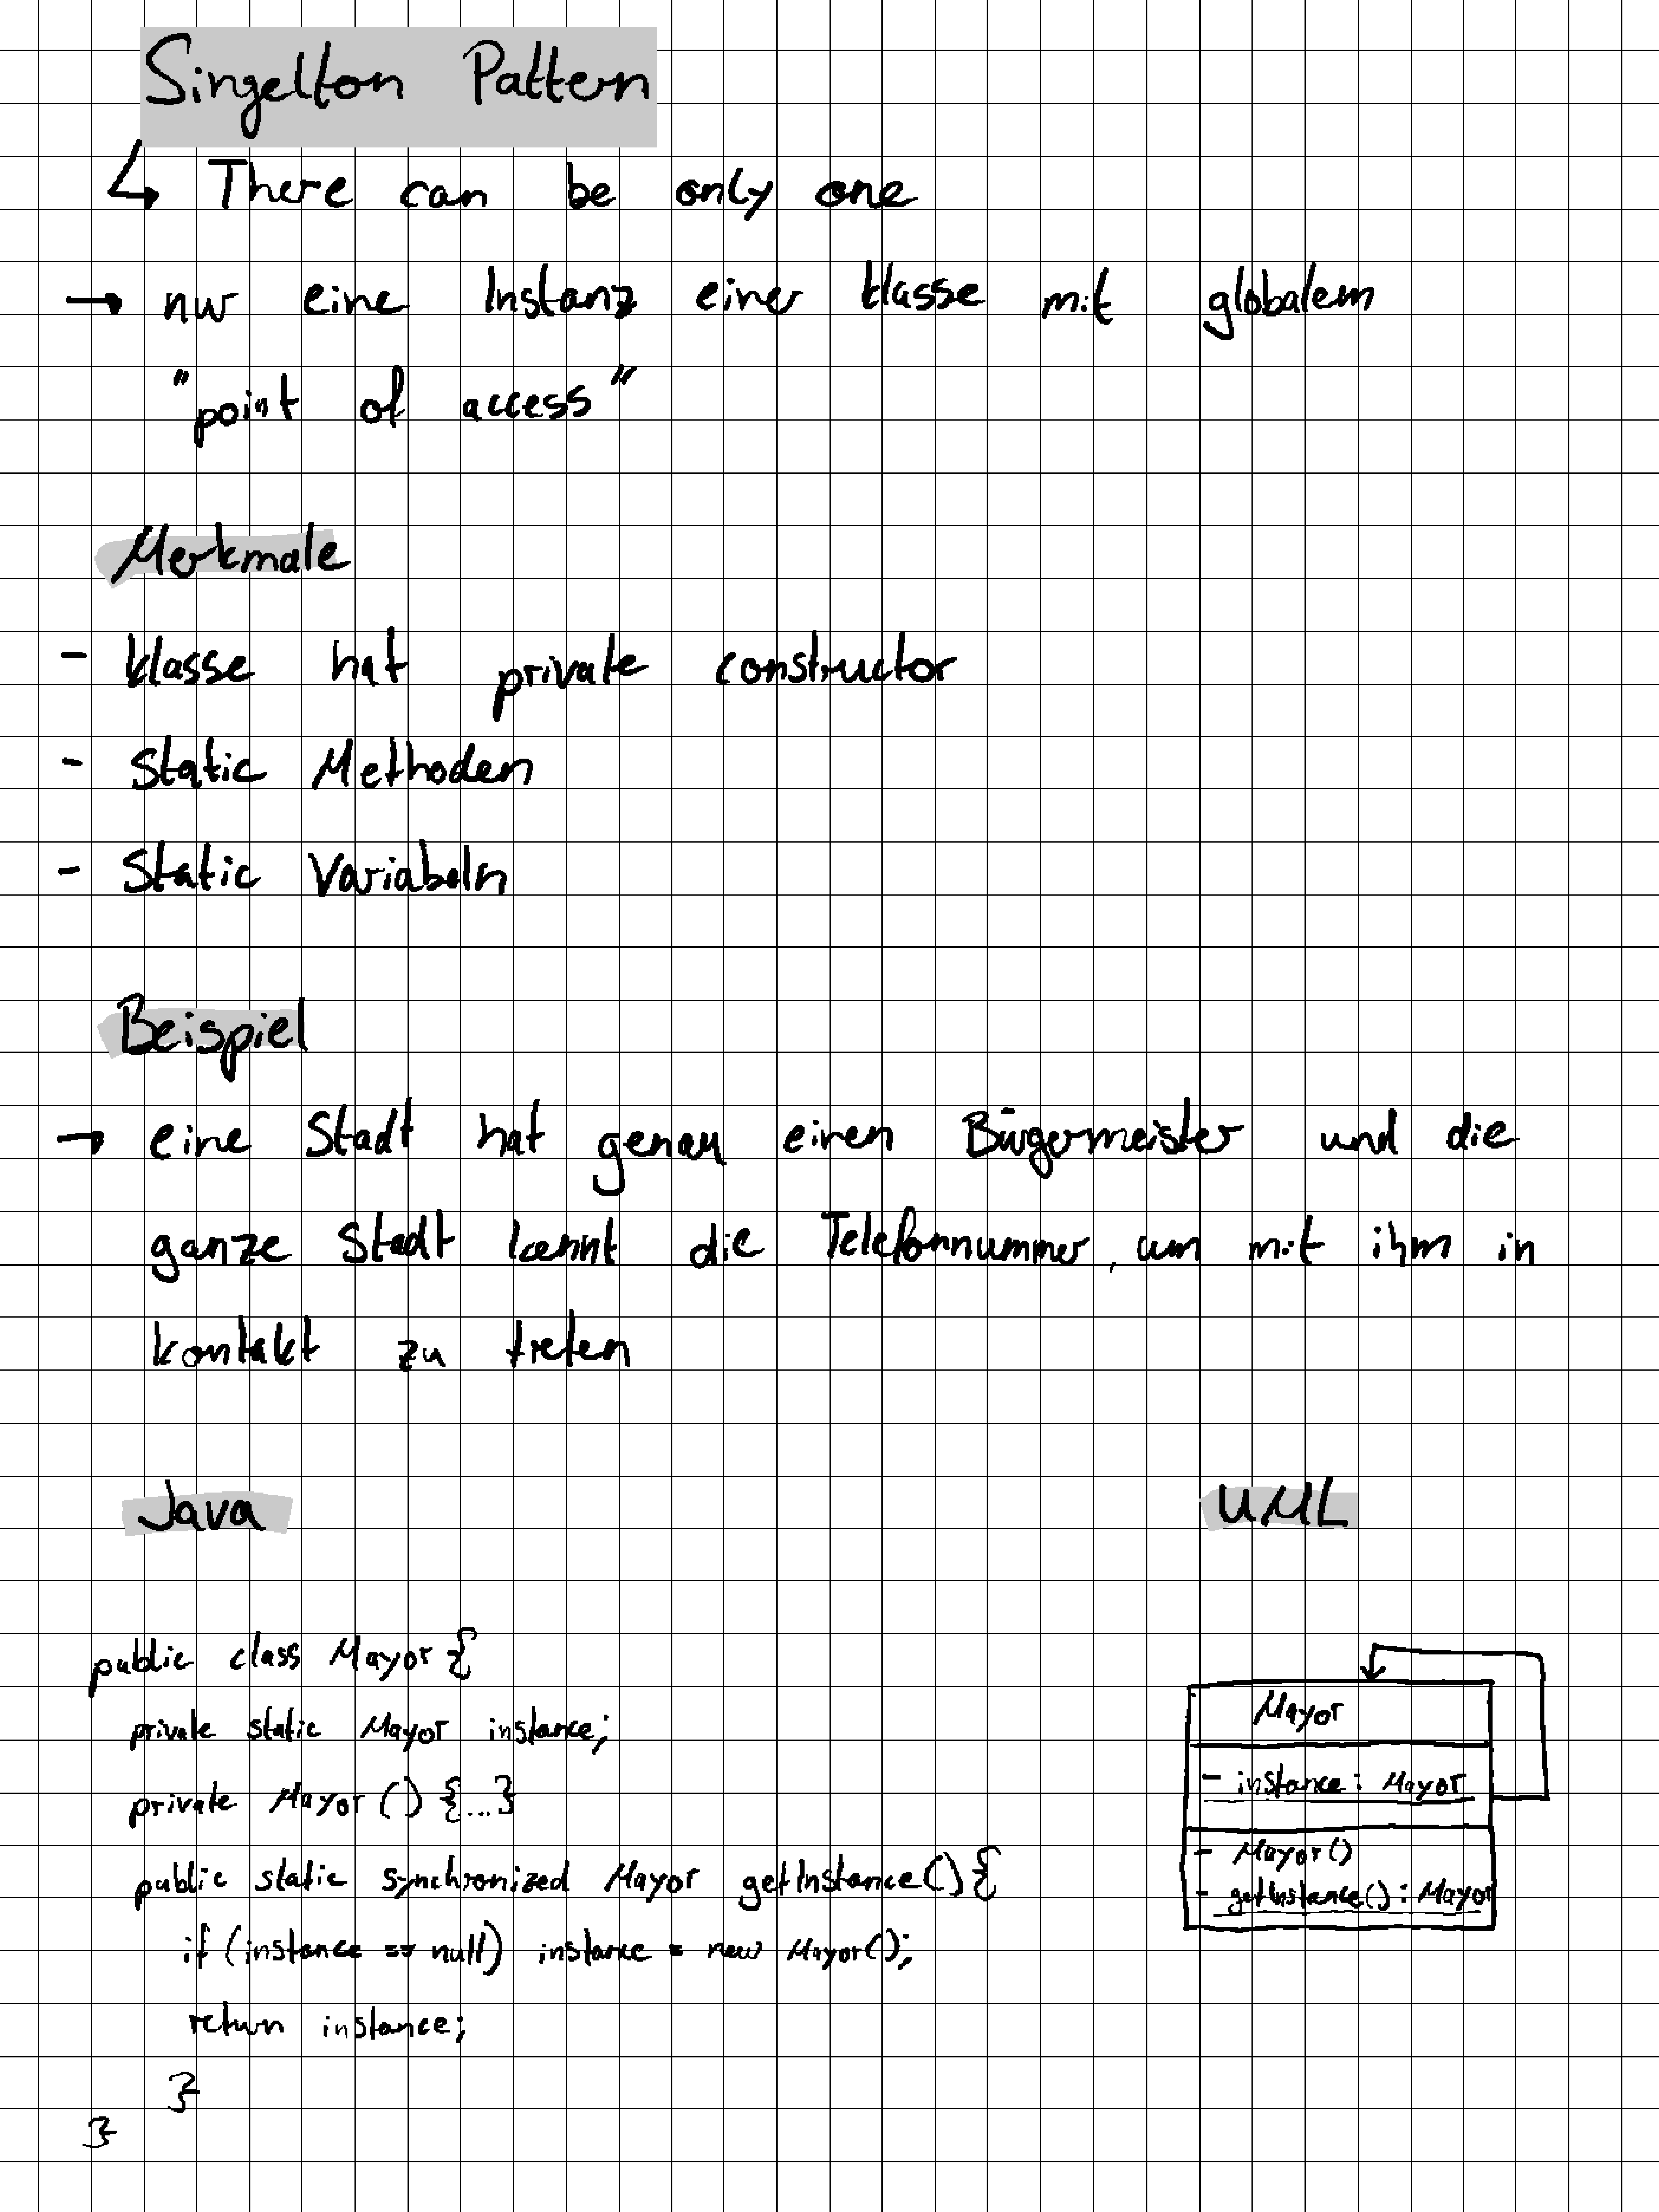 Singelton Pattern
↳ There can be only one
→ nur eine Instanz einer klasse mit globalem
"point of access"
Merkmale
- klasse hat private constructor
- Static Methoden
- Static Variabeln
Beispiel
→ eine Stadt hat genau einen Bürgermeister und die
ganze Stadt kennt die Telefonnummer, um mit ihm in
kontakt zu treten
Java
UML
public class Mayor {
private static Mayor instance;
private Mayor () {...}
public static synchronized Mayor getInstance() {
if (instance == null) instance = new Mayor();
return instance;
}
}
Mayor
- instance: Mayor
- Mayor()
- getInstance(): Mayor